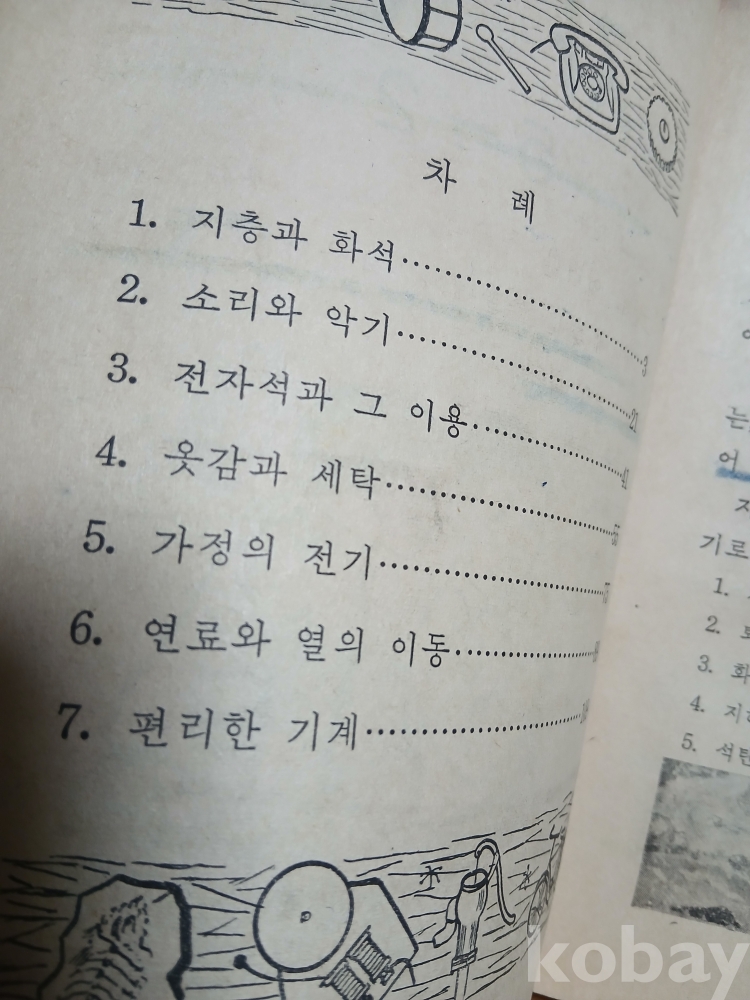 차 례
1. 지층과 화석 3
2. 소리와 악기 21
3. 전자석과 그 이용 41
4. 옷감과 세탁
5. 가정의 전기
6. 연료와 열의 이동
7. 편리한 기계
는
어
기로
1.
2.
3. 화
4.
5. 석탄
kobay